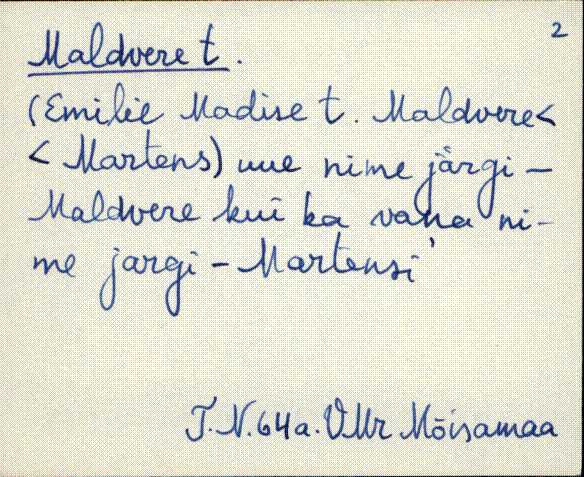 2
Maldvere t.
(Emilie Madise t. Maldvere<
< Martens) uue nime järgi –
Maldvere kui ka vana ni-
me järgi – Martensi'
J.N.64a. VMr Mõisamaa